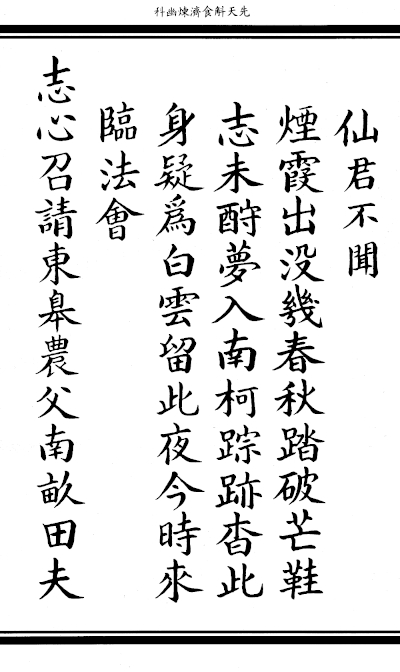 先天斛食濟煉幽科
仙君不聞
煙霞出没幾春秋踏破芒鞋
志未酧夢入南柯踪跡杳此
身疑爲白雲留此夜今時來
臨法會
志心召請東皋農父南畝田夫